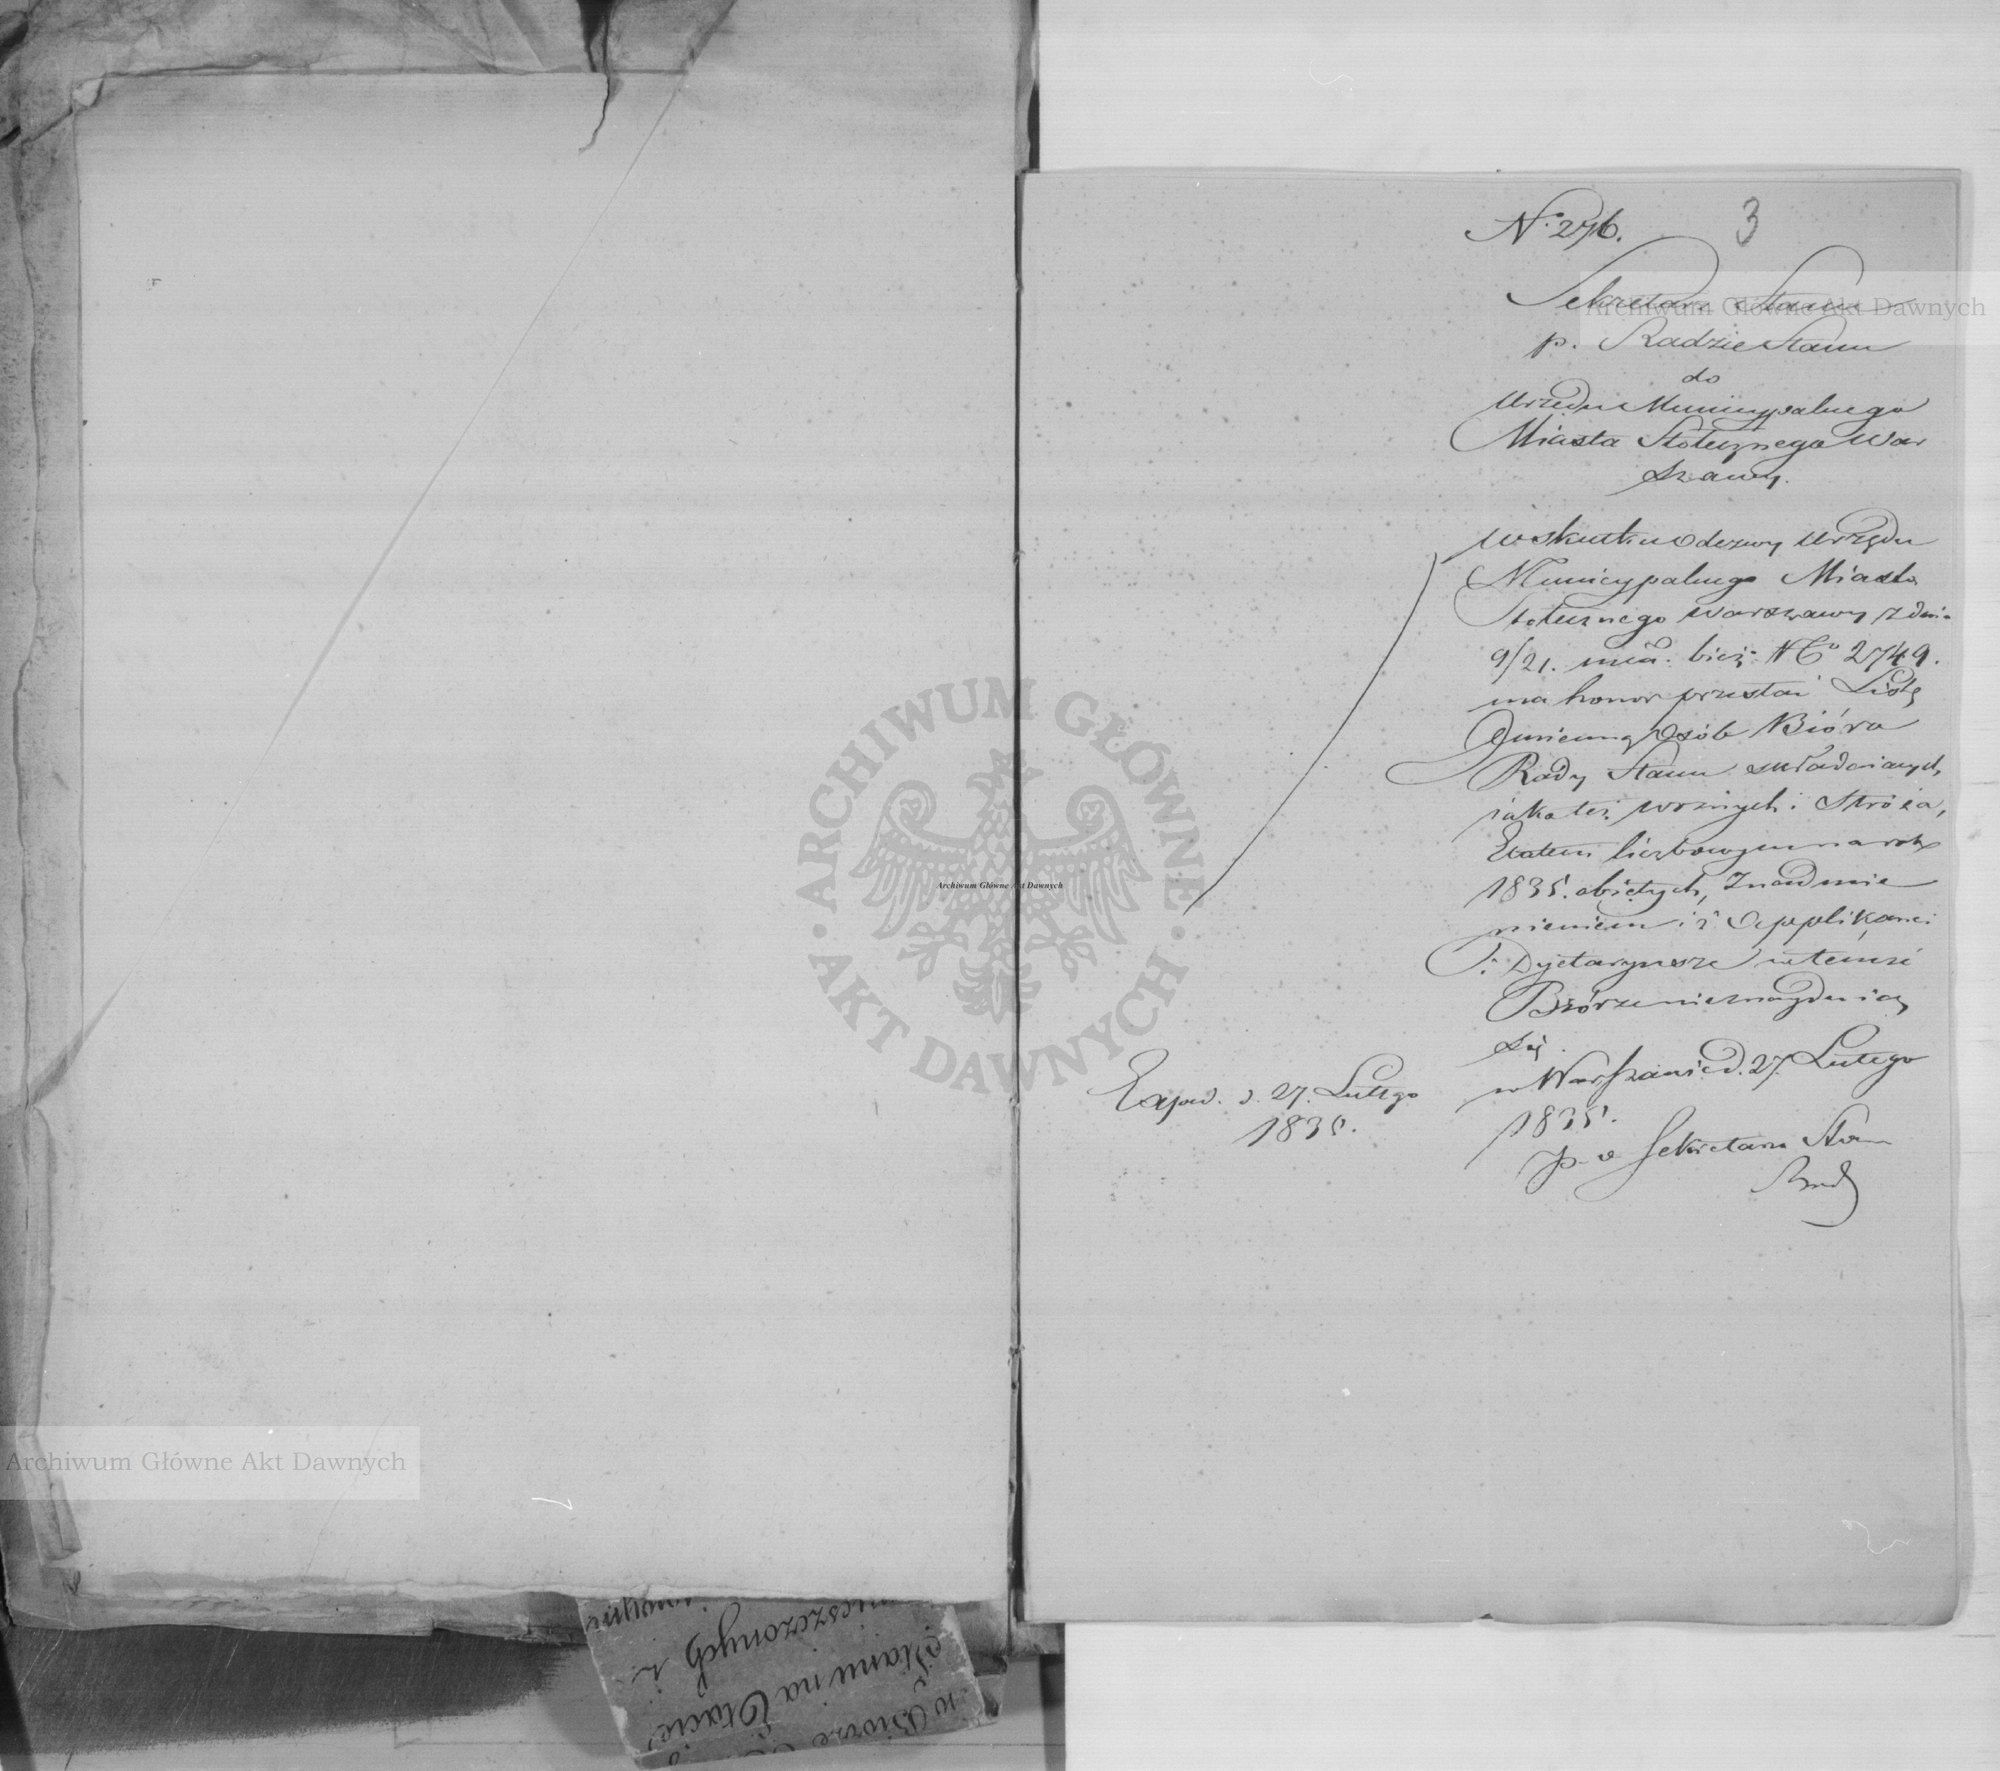 N° 276.
3
Sekretarz Stanu
p. Radzie Stanu
do
Urzędu Municypalnego
Miasta Stołecznego War
szawy.
W skutku Odezwy Urzędu
Municypalnego Miasta
Stołecznego Warszawy z dnia
9/21. mca. bież: N° 2749.
ma honor przesłać Listę
Imienną Osób Bióro
Rady Stanu składaiących,
iako też woźnych i Stróża,
Etatem liczbowym na rok
1835. obiętych, z nadmie
nieniem iż Applikanci
i Dyetaryusze w temże
Biórze nieznayduią
się.
w Warszawie d. 27. Lutego
1835.
p. o Sekretarza Stanu
Exped. d. 27. Lutego
1835.
w Biórze
Stanu na Etacie
mieszczonych i
Archiwum Główne Akt Dawnych
Archiwum Główne Akt Dawnych
Archiwum Główne Akt Dawnych
ARCHIWUM GŁÓWNE
AKT DAWNYCH